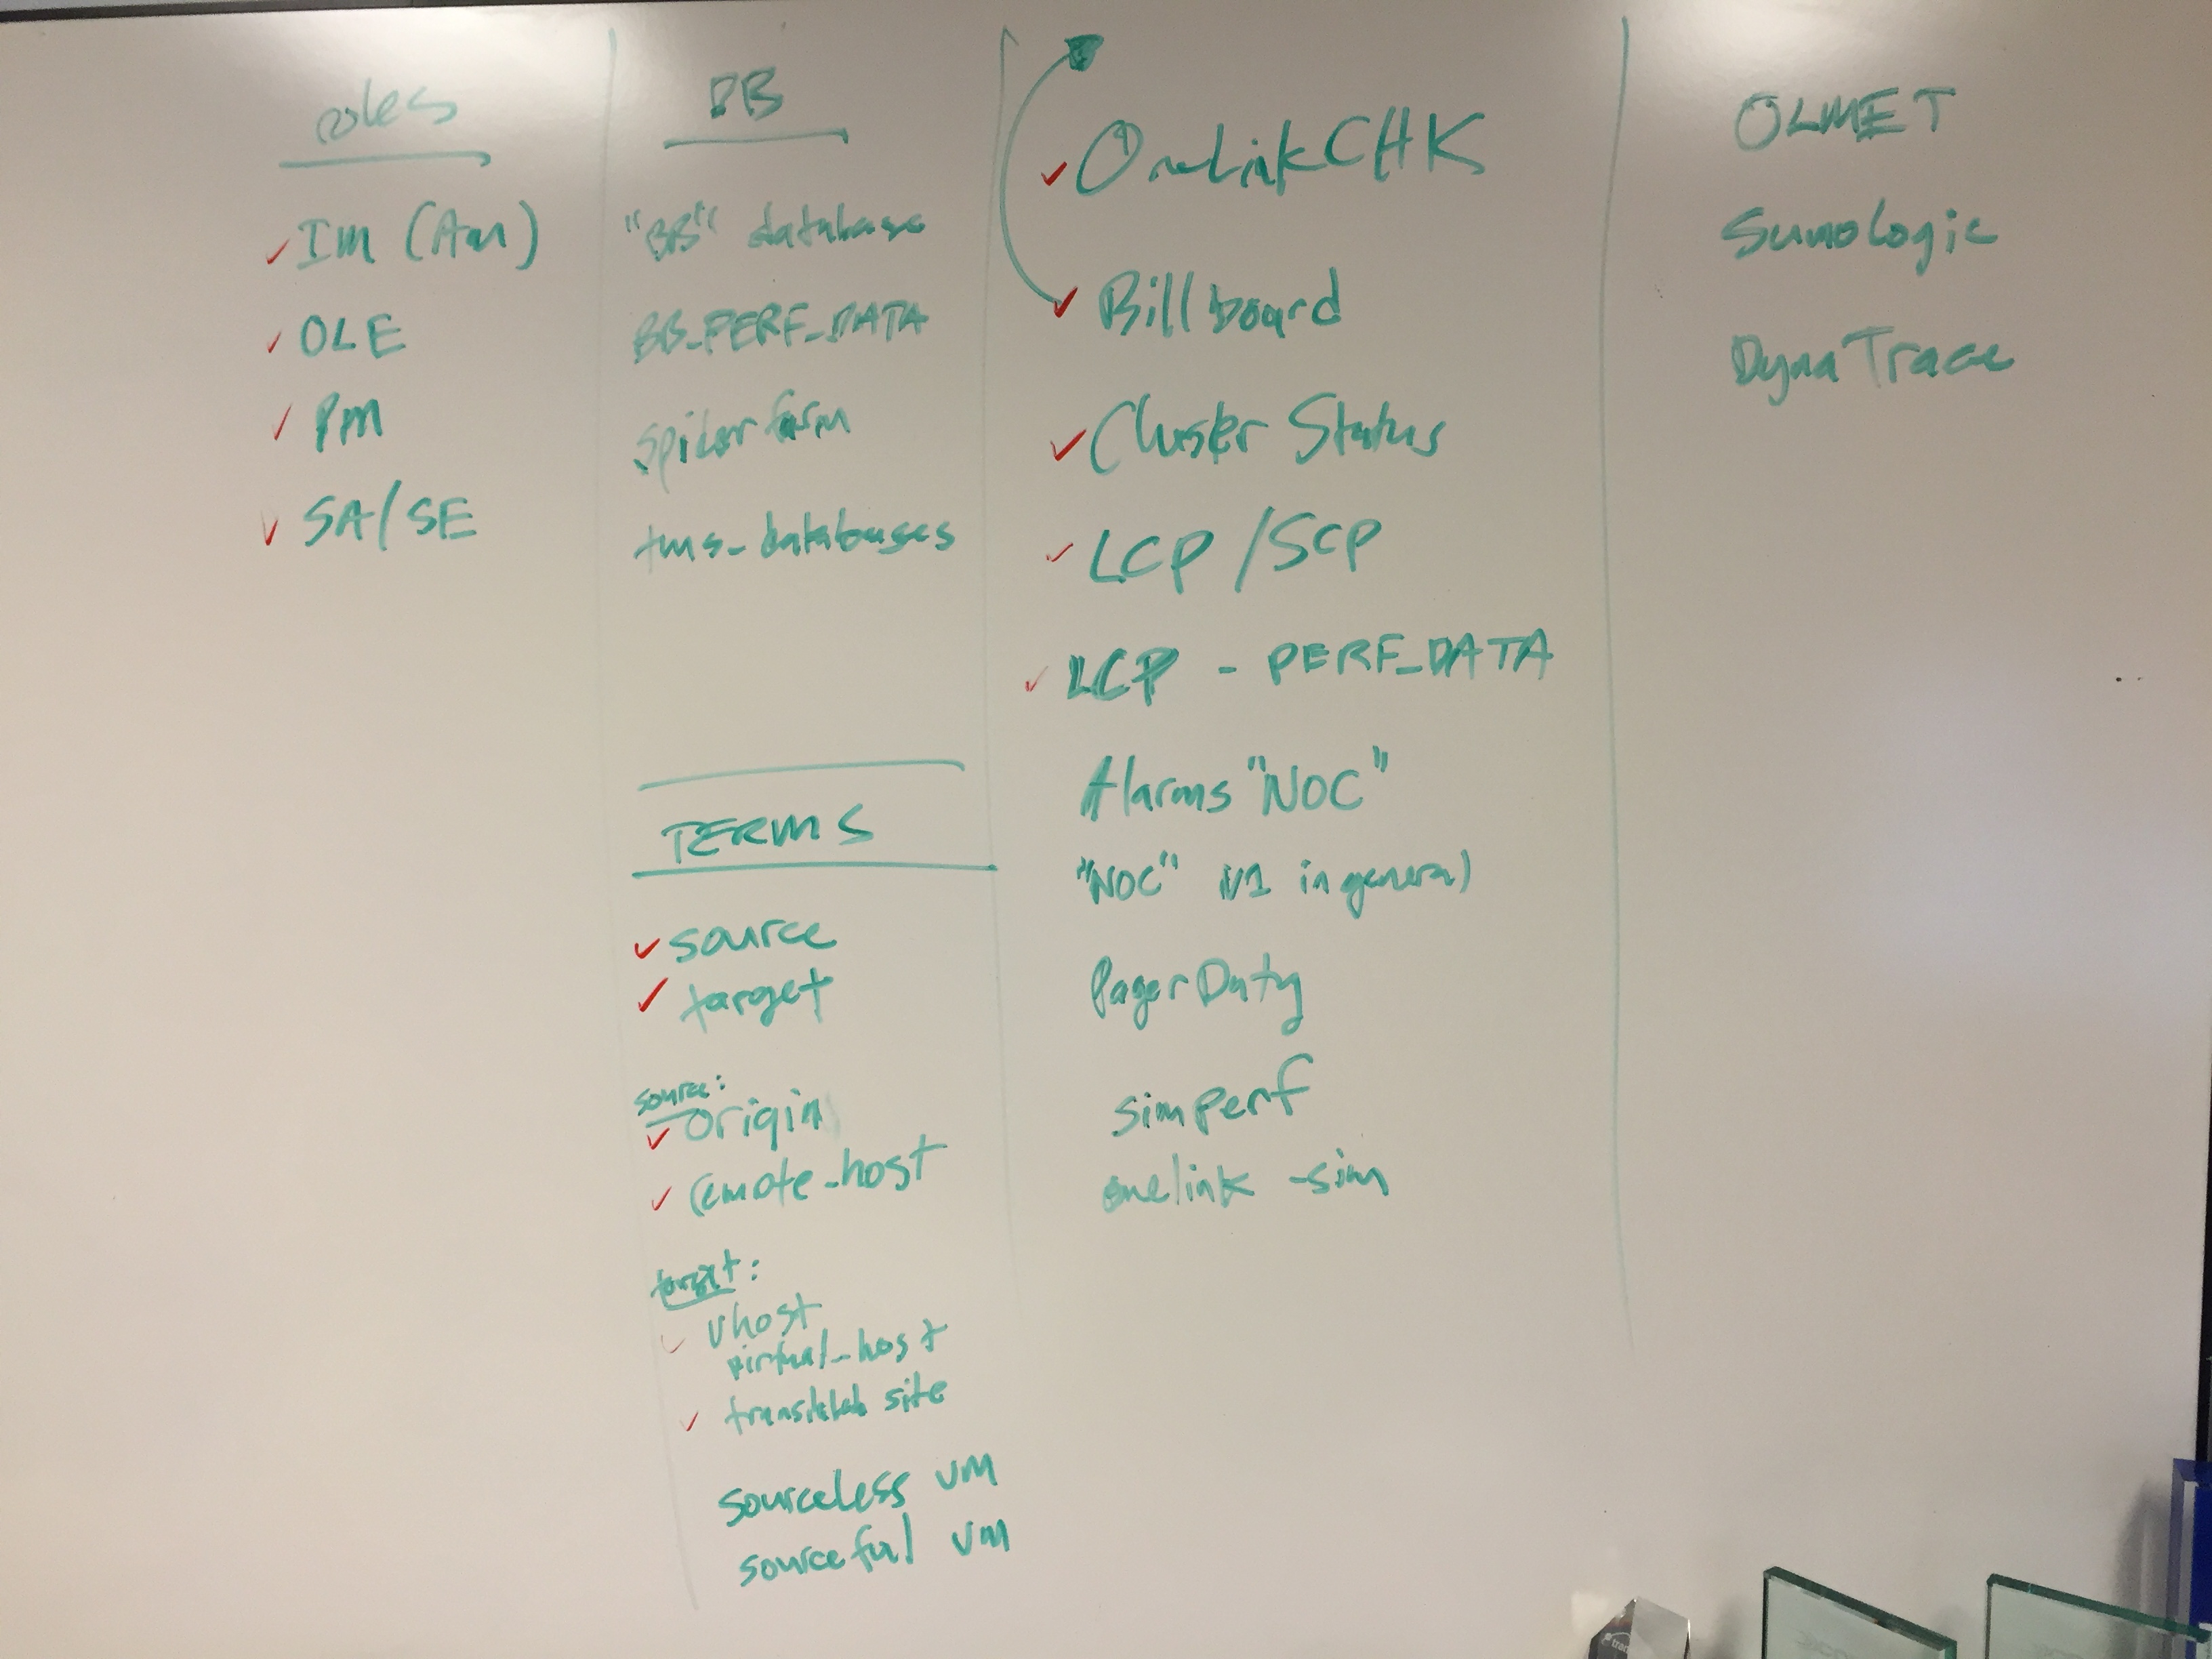 roles
✓ Im (Am)
✓ OLE
✓ Pm
✓ SA/SE
"BB" database
BB_PERF_DATA
tms_databases
TERMS
✓ source
✓ target
source:
✓ origin
✓ remote_host
target:
✓ vhost
virtual_host
✓ site
sourceless vm
sourceful vm
✓ OneLinkCHK
✓ Billboard
✓ Cluster Status
✓ LCP / SCP
✓ LCP - PERF_DATA
Alarms "NOC"
"NOC" V1 in general
PagerDuty
simperf
onelink -sim
OLMET
SumoLogic
DynaTrace